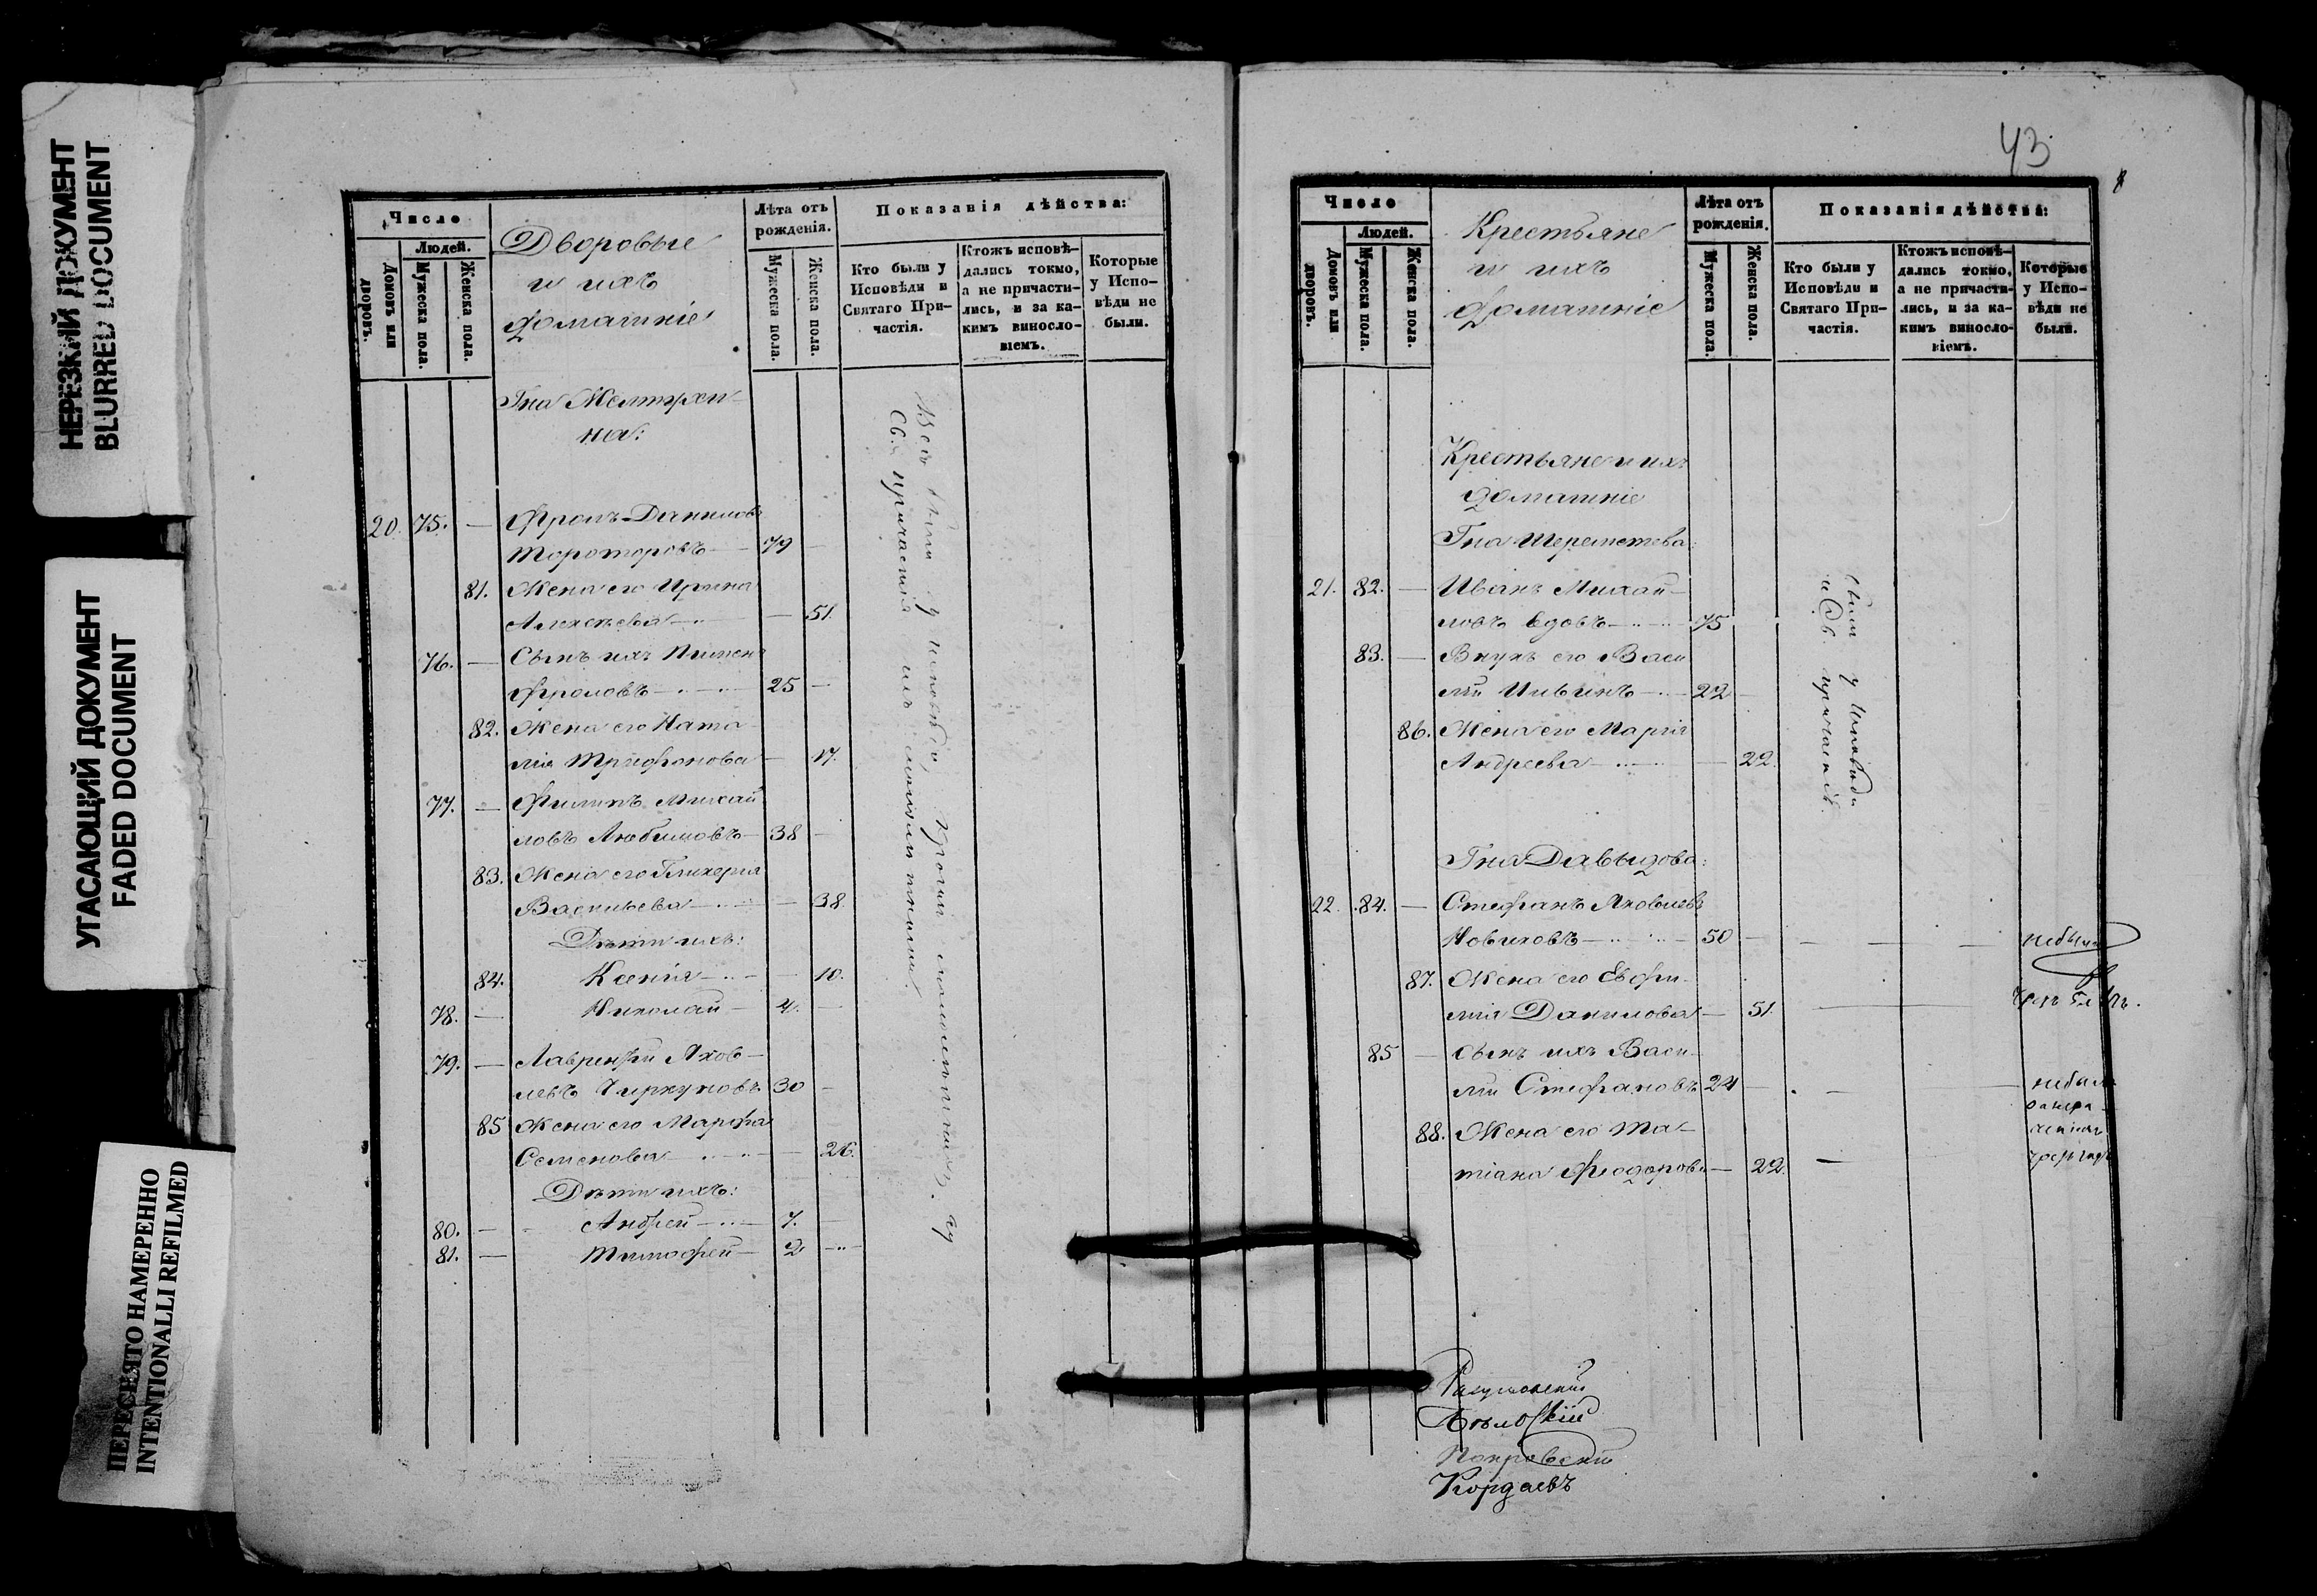 НЕРЕЗКИЙ ДОКУМЕНТ
BLURRED DOCUMENT
УГАСАЮЩИЙ ДОКУМЕНТ
FADED DOCUMENT
ПЕРЕСНЯТО НАМЕРЕННО
INTENTIONALLI REFILMED
Число
Людей.
Домовъ или дворовъ.
Мужеска пола.
Женска пола.
Дворовые
и ихъ
домашніе
Лѣта отъ рожденія.
Мужеска пола.
Женска пола.
Показанія дѣйства:
Кто были у Исповѣди и Святаго Причастія.
Ктожъ исповѣдались токмо, а не причастились, и за какимъ винословіемъ.
Которые у Исповѣди не были.
Гна
на:
20. 75. — Фролъ Данилов
79 —
81. Жена его Ирина
Алексѣева — — 51.
76. — Сынъ ихъ Пимен
Фроловъ — 25 —
82. Жена его Ната
лія Трифонова — 17.
77. — Филипъ Михай
ловъ Любимовъ — 38 —
83. Жена его Гликерія
Васильева — — 38
Дѣти ихъ:
84. Ксенія — — 10.
78. — Николай — 4. —
79. — Лаврентій Яков—
левъ Чиркуновъ 30 —
85 Жена его Марфа
Семенова — — 26.
Дѣти ихъ:
80. — Андрей — 7. —
81. — Тимофей — 2 —
Всѣ были у исповѣди и
Св. причастія
43
Число
Людей.
Домовъ или дворовъ.
Мужеска пола.
Женска пола.
Крестьяне
и ихъ
домашніе
Лѣта отъ рожденія.
Мужеска пола.
Женска пола.
Показанія дѣйства:
Кто были у Исповѣди и Святаго Причастія.
Ктожъ исповѣдались токмо, а не причастились, и за какимъ винословіемъ.
Которые у Исповѣди не были.
Крестьяне и ихъ
домашніе
Гна Шереметева:
21. 82. — Иванъ Михай—
ловъ вдовъ — 75
83. — Внукъ его Васи
лій — 22 —
86. Жена его Марія
Андреева — — 22.
были у Исповѣди
и Св. причастія.
Гна Давыдова:
22. 84. — Стефанъ Яковлевъ
Новиковъ — 50 — — — — небыли
87. Жена его Евфи—
мія Данилова — 51. — —
85 — Сынъ ихъ Васи—
лій Стефановъ 24 — — — небыли
88. Жена его Та—
тіана Феодорова — 22. —
Разумовскій
Покровскій